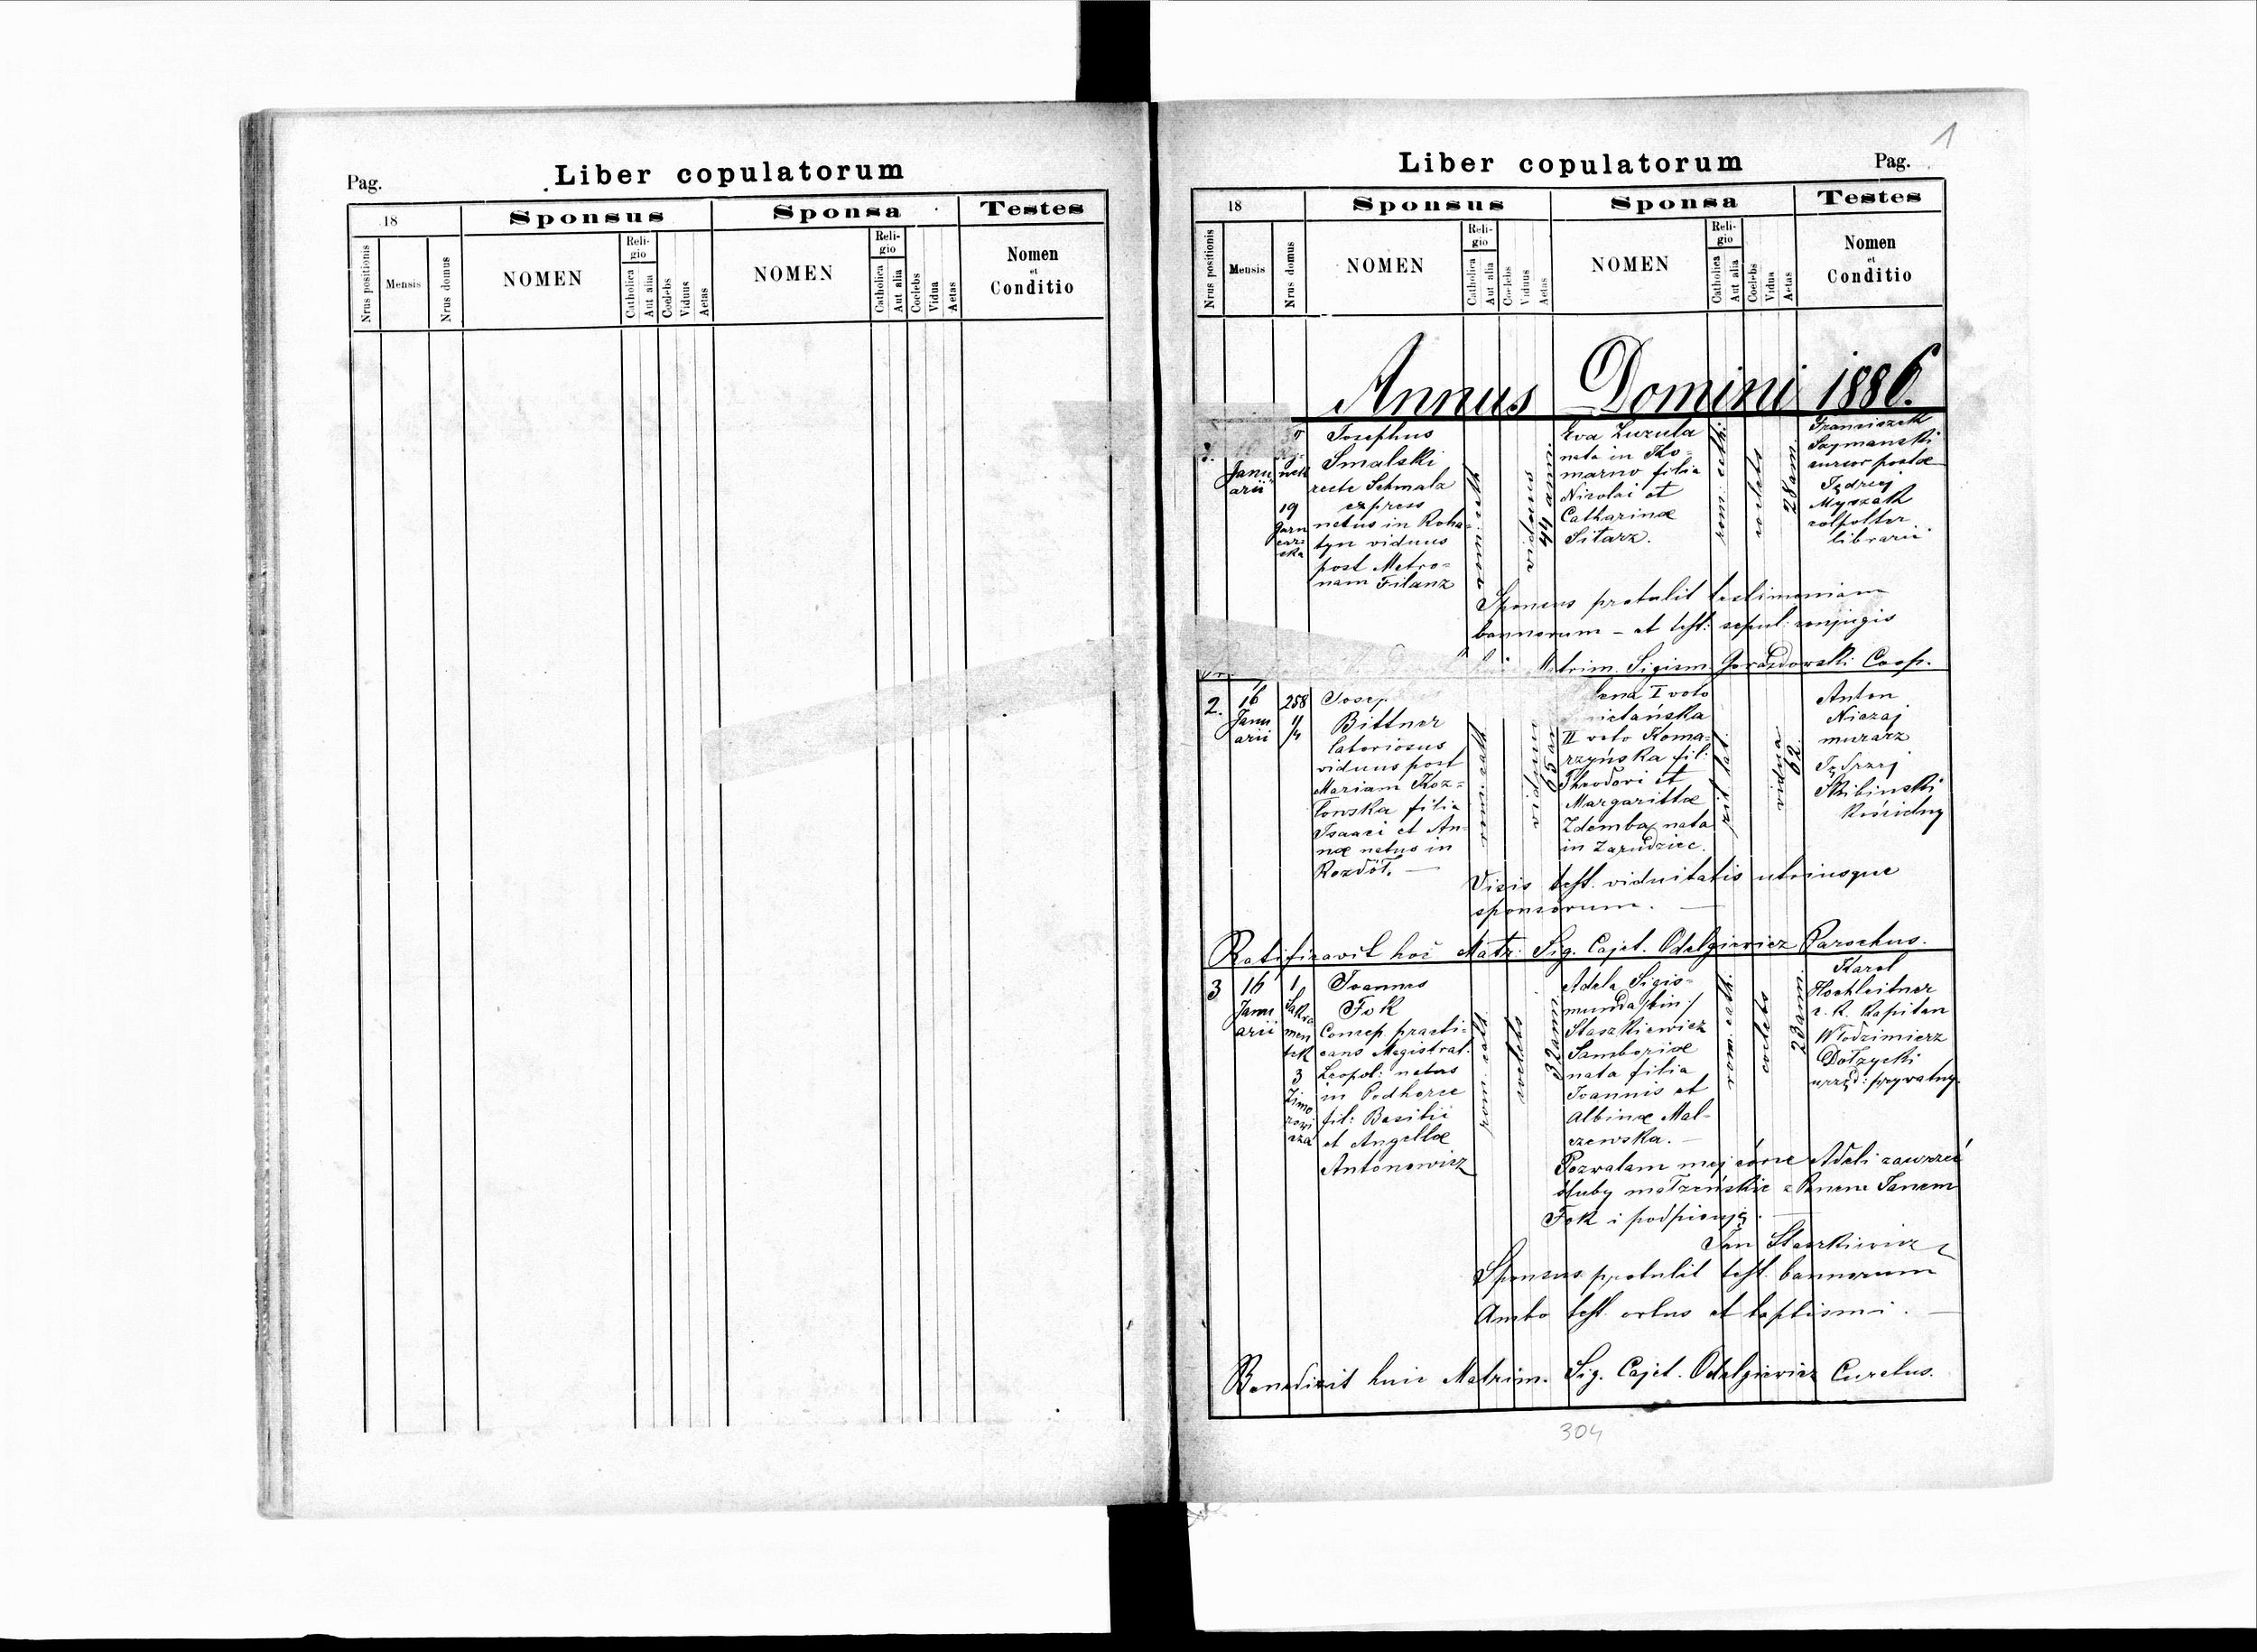 Pag.
Liber copulatorum
18
Sponsus
Sponsa
Testes
Nrus positionis
Mensis
Nrus domus
NOMEN
Reli-
gio
Catholica
Aut alia
Coelebs
Viduus
Aetas
NOMEN
Reli-
gio
Catholica
Aut alia
Coelebs
Vidua
Aetas
Nomen
et
Conditio
1
Liber copulatorum
Pag.
18
Sponsus
Sponsa
Testes
Nrus positionis
Mensis
Nrus domus
NOMEN
Reli-
gio
Catholica
Aut alia
Coelebs
Viduus
Aetas
NOMEN
Reli-
gio
Catholica
Aut alia
Coelebs
Vidua
Aetas
Nomen
et
Conditio
Annus Domini 1886.
Janu
arii
19
Garn
cars
ska
Josephus
Smalski
recte Schmalz
express
natus in Roha-
tyn viduus
post Metro-
nam Filanz
viduus
44 ann.
Eva Zuzula
nata in Ko-
marno filia
Nicolai et
Catharinæ
Sitarz.
rom. cath.
coelebs
28 ann.
Franciszek
Szymanski
cursor postæ
Jędrzej
Myszak
colpolter
librarii
Sponsus protulit testimonium
bannorum - et test: sepul: conjugis
Matrim. Sigism. Gorazdowski Coop.
2.
16
Janu
arii
258
1/4
Josep
Bittner
laboriosus
viduus post
Mariam Koz-
łowska filia
Isaaci et An-
næ natus in
Rozdół.
viduus
65
I voto
II voto Koma-
rzyńska fil:
Theodori et
Margarittæ
Zdemba nata
in Zarudziec.
rit lat
vidua
62.
Anton
Niezaj
murarz
Jędrzej
Skibinski
Kościelny
Visis test. viduitatis utriusque
sponsorum.
Ratificavit hoc Matr. Sig. Cajet. Odelgiewicz Parochus.
3
16
Janu
arii
1
Sakra
men
tek
3
Zimo
rowi
cza
Joannes
Fok
Concep practi-
cans Magistrat.
Leopol: natus
in Podhorce
fil: Basilii
et Angellæ
Antonowicz
rom cath
coelebs
32 ann.
Adela Sigis-
munda /bin:/
Staszkiewicz
Samboriæ
nata filia
Joannis et
Albinæ Mal-
czewska.
rom. cath.
coelebs
23 ann.
Karol
Hochleitner
c. k. kapitan
Włodzimierz
Dołzycki
urzęd: prywatny
Pozwalam mej córce Adeli zawrzeć
śluby małżeńskie z Panem Janem
Fok i podpisuję.
Jan Staszkiewicz
Sponsus protulit test. bannorum
Ambo test. ortus et baptismi.
Benedixit huic Matrim. Sig. Cajet. Odelgiewicz Curatus.
304